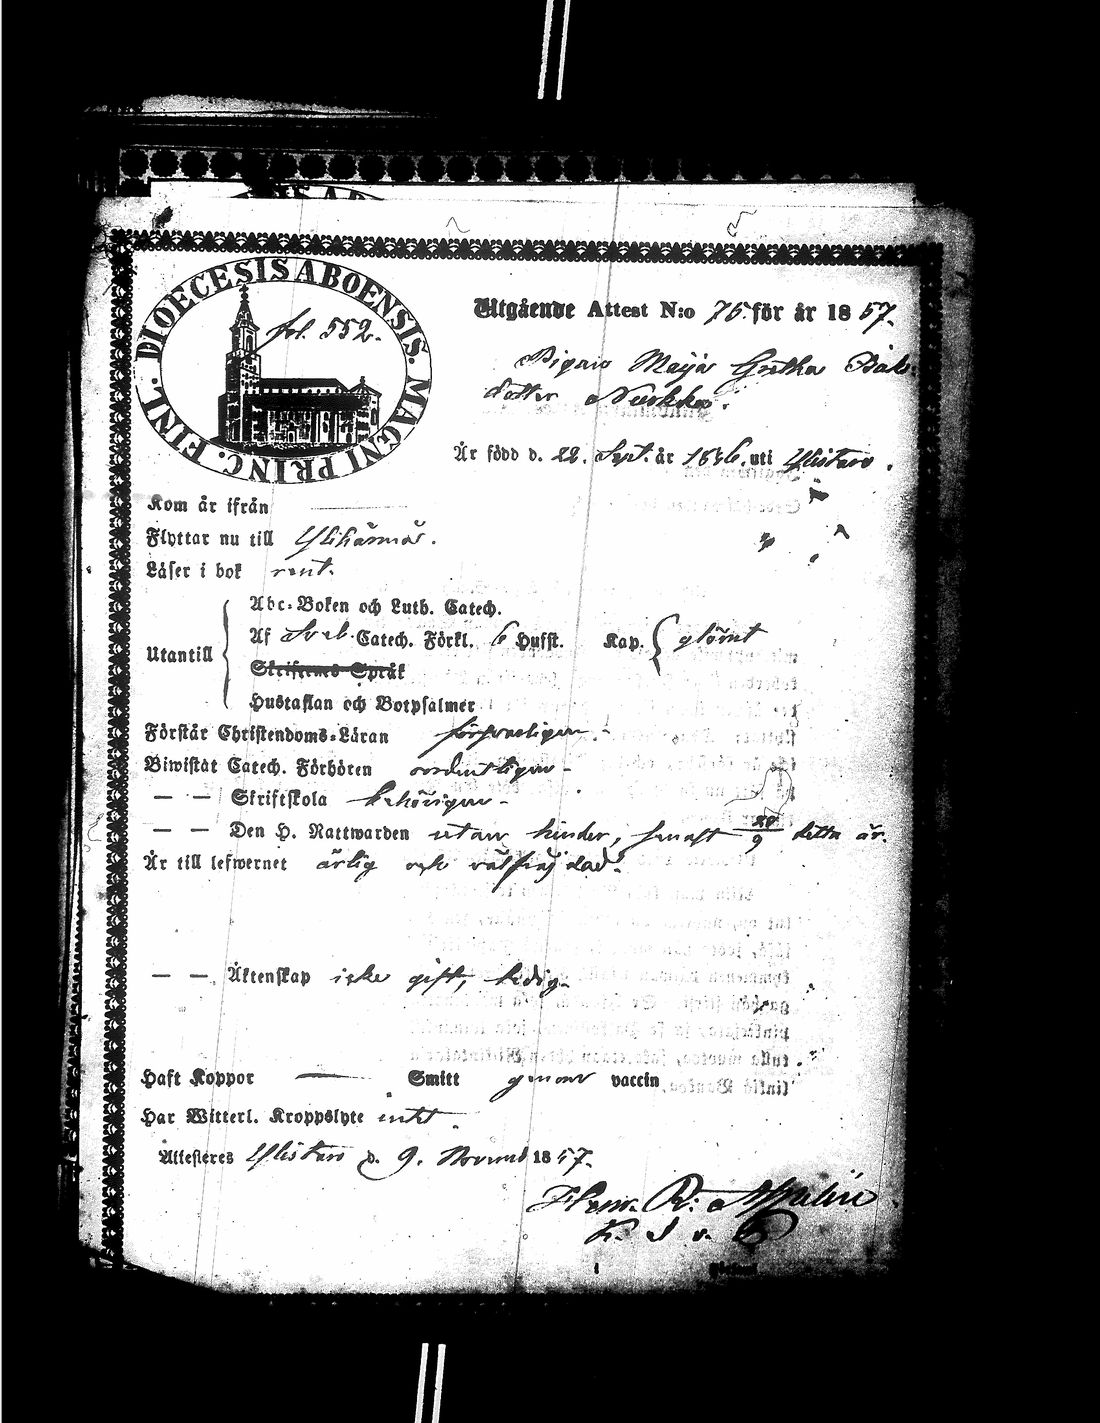 DIOECESIS ABOENSIS. MAGNI PRINC. FINL.
fol. 552.
Utgående Attest N:o 75. för år 1857.
Pigan Maija Gretha
dotter
Är född d. 22. Sept. år 1836. uti Ylistaro.
Kom år ifrån
Flyttar nu till Ylihärmä.
Läser i bok rent.
Utantill
Abc-Boken och Luth. Catech.
Af Sveb. Catech. Förkl. 6 Hufst. Kap. glömt
Skriftenes Språk
Hustaflan och Botpsalmer
Förstår Christendoms-Läran försvarligen.
Biwistat Catech. Förhören ordentligen.
— — Skriftskola behörigen.
— — Den H. Nattwarden utan hinder, senast 20/9 detta år.
Är till lefwernet ärlig och välfräjdad.
— — Äktenskap icke gift, ledig.
Haft Koppor — Smitt genom vaccin
Har Witterl. Kroppslyte intet.
Attesteres Ylistaro d. 9. Novemb 1857.